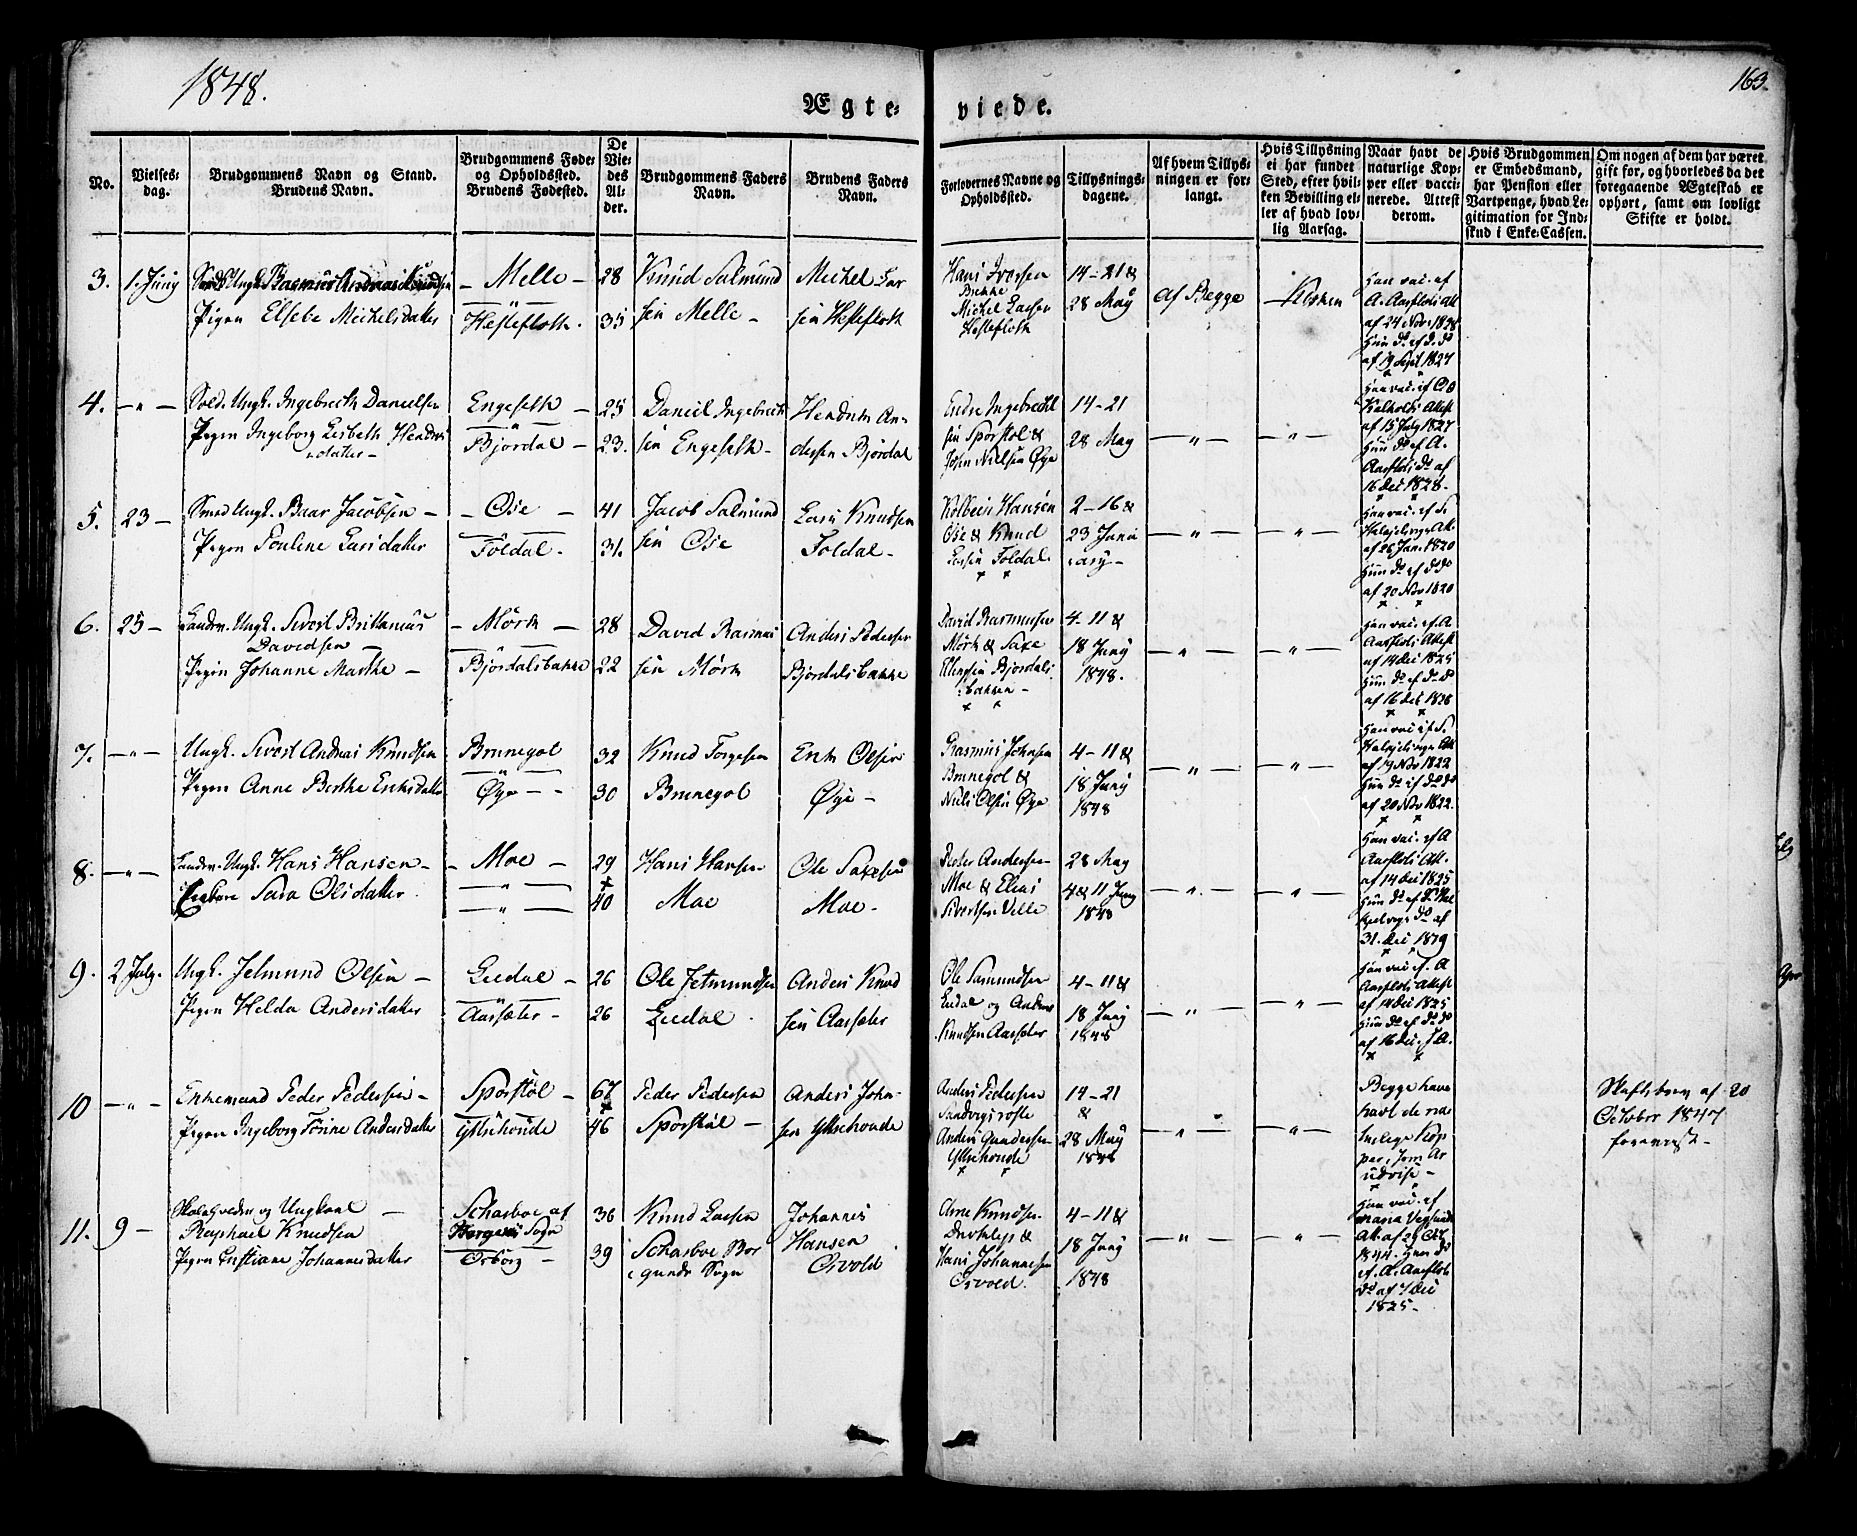 1848.
163.
Ægte-
viede.
No.
Vielses-
dag.
Brudgommens Navn og Stand.
Brudens Navn.
Brudgommens Føde-
og Opholdssted.
Brudens Fødested.
De
Vie-
des
Al-
der.
Brudgommens Faders
Navn.
Brudens Faders
Navn.
Forlovernes Navne og
Opholdssted.
Tillysnings-
dagene.
Af hvem Tillys-
ningen er for-
langt.
Hvis Tillysning
ei har fundet
Sted, efter hvil-
ken Bevilling el-
ler af hvad lov-
lig Aarsag.
Naar havt de
naturlige Kop-
per eller vacci-
nerede. Attest
derom.
Hvis Brudgommen
er Embedsmand,
har Pension eller
Vartpenge, hvad Le-
gitimation for Ind-
skud i Enke-Cassen.
Om nogen af dem har været
gift før, og hvorledes da det
foregaaende Ægteskab er
ophørt, samt om lovligt
Skifte er holdt.
3. 1. Juny
Ungk. Rasmus Andreas Knudsen
Pigen Elsebe Michelsdatter
- Melle -
Hesteflott.
28
35
Knud Salmund
sen Melle -
Michel Lar
sen Hesteflott
Hans Iversen
Michel Larsen
Hesteflott
14-21 &
28 May
Af Begge
- Kirken
Han vac. ef
A. Aarflots Att
af 24 Nov. 1828
Hun do. ef do. do
af 19 Sept 1827
4. - " -
Sold. Ungk. Ingebrecth Danielsen
Pigen Ingeborg Lisbeth Hendrics
datter -
Engeseth -
"
Bjørdal -
25
23.
Daniel Ingebrecth
sen Engeseth -
Hendrich An-
dersen Bjørdal
Endre Ingebrecht
sen Sporstøl &
John Nielsen Øye
14-21
28 May
- " -
- " -
Han vac. ef
Attest
af 15 July 1827
Hun do. ef A.
Aarflots do. af
16 Dec 1828.
5. 23 -
Ungk. Baar Jacobsen -
Pigen Pouline Larsdatter
- Ose -
Foldal -
41
31.
Jacob Salmund
sen Ose
Lars Knudsen
Foldal -
Kolbein Hansen
Ose & Knud
Larsen Foldal.
2-16 &
23 Janu
ary -
- " -
- " -
Han vac. ef
Att.
af 26 Jan. 1820
Hun do ef do do
af 20 Nov 1820
6. 25 -
Landev. Ungk. Sivert Brittanius
Davidsen -
Pigen Johanne Marthe -
- Mørk -
- Bjørdalsbakke
28
22
David Rasmus
sen Mørk
Anders Pedersen
Bjørdalsbakke
David Rasmussen
Mørk & Saxe
Bjørdals
bakken -
4-11 &
18 Juny
1848.
- " -
- " -
Han vac. ef A
Aarflots Attest
af 14 Dec 1825
Hun do. ef do do
af 16 Dec 1828
7. - " -
Ungk. Sivert Andreas Knudsen
Pigen Anne Berthe Eriksdatter
Brunegot
"
Øye - -
32
30
Knud Torgersen
Brunegot
Erik Olsen
Øye -
Rasmus Johnsen
Brunegot &
Niels Olsen Øye
4-11 &
18 Juny
1848
- " -
- " -
Han vac ef
Att
af 19 Nov 1822
Hun do. ef do do
af 20 Nov 1822.
8. - " -
Landev. Ungk. Hans Hansen -
Sara Olsdatter
- Moe -
- " -
- " -
29
40
Hans Hansen
Moe
Ole Saxesen
Moe -
Peter Andersen
Moe & Elias
Sivertsen Velle
28 May
4 & 11 Juny
1848
- " -
- " -
Han vac. ef A
Aarflots Att.
af 14 Dec 1825
Hun do. ef
do af
31. Dec 1819
9. 2 July.
Ungk. Jetmund Olsen -
Pigen Helda Andersdatter
Leedal -
Aarsæter -
26
26
Ole Jetmundsen
Leedal
Anders Knud
sen Aarsæter
Ole Samundsen
Leedal og Anders
Knudsen Aarsæter
4-11 &
18 Juny
1848
- " -
- " -
Han vac ef. A
Aarflots Attest
af 14 Dec 1825
Hun do. ef do do
af 16 Dec. f A.
10 - " -
Enkemand Peder Pedersen -
Pigen Ingeborg Andersdatter
Sporstøl -
Ytrehovde
67
46
Peder Pedersen
Sporstøl -
Anders John-
sen Ytrehovde
Anders Pedersen
Anders Gundersen
Ytrehovde
14-21
&
28 May
1848
- " -
- " -
Begge have
havt de na
turlige Kop
per, som Ar
udvise -
Skiftebrev af 20
October 1847
foreviist -
11. 9 -
og Ungkarl -
Raphael Knudsen
Pigen Cristiane Johannesdatter
Scharboe af
Sogn
Ørborg -
36
39
Knud Larsen
Scharboe Bor
gunds Sogn
Johannes
Hansen
Osvold
Arne Knudsen
&
Hans Johannesen
Osvold.
4-11 &
18 Juny
1848
- " -
- " -
Han vac. ef
Maria
Att. af 29 Oct
1844. Hun do
ef. A. Aarflots
do af 7 Dec
1825 -